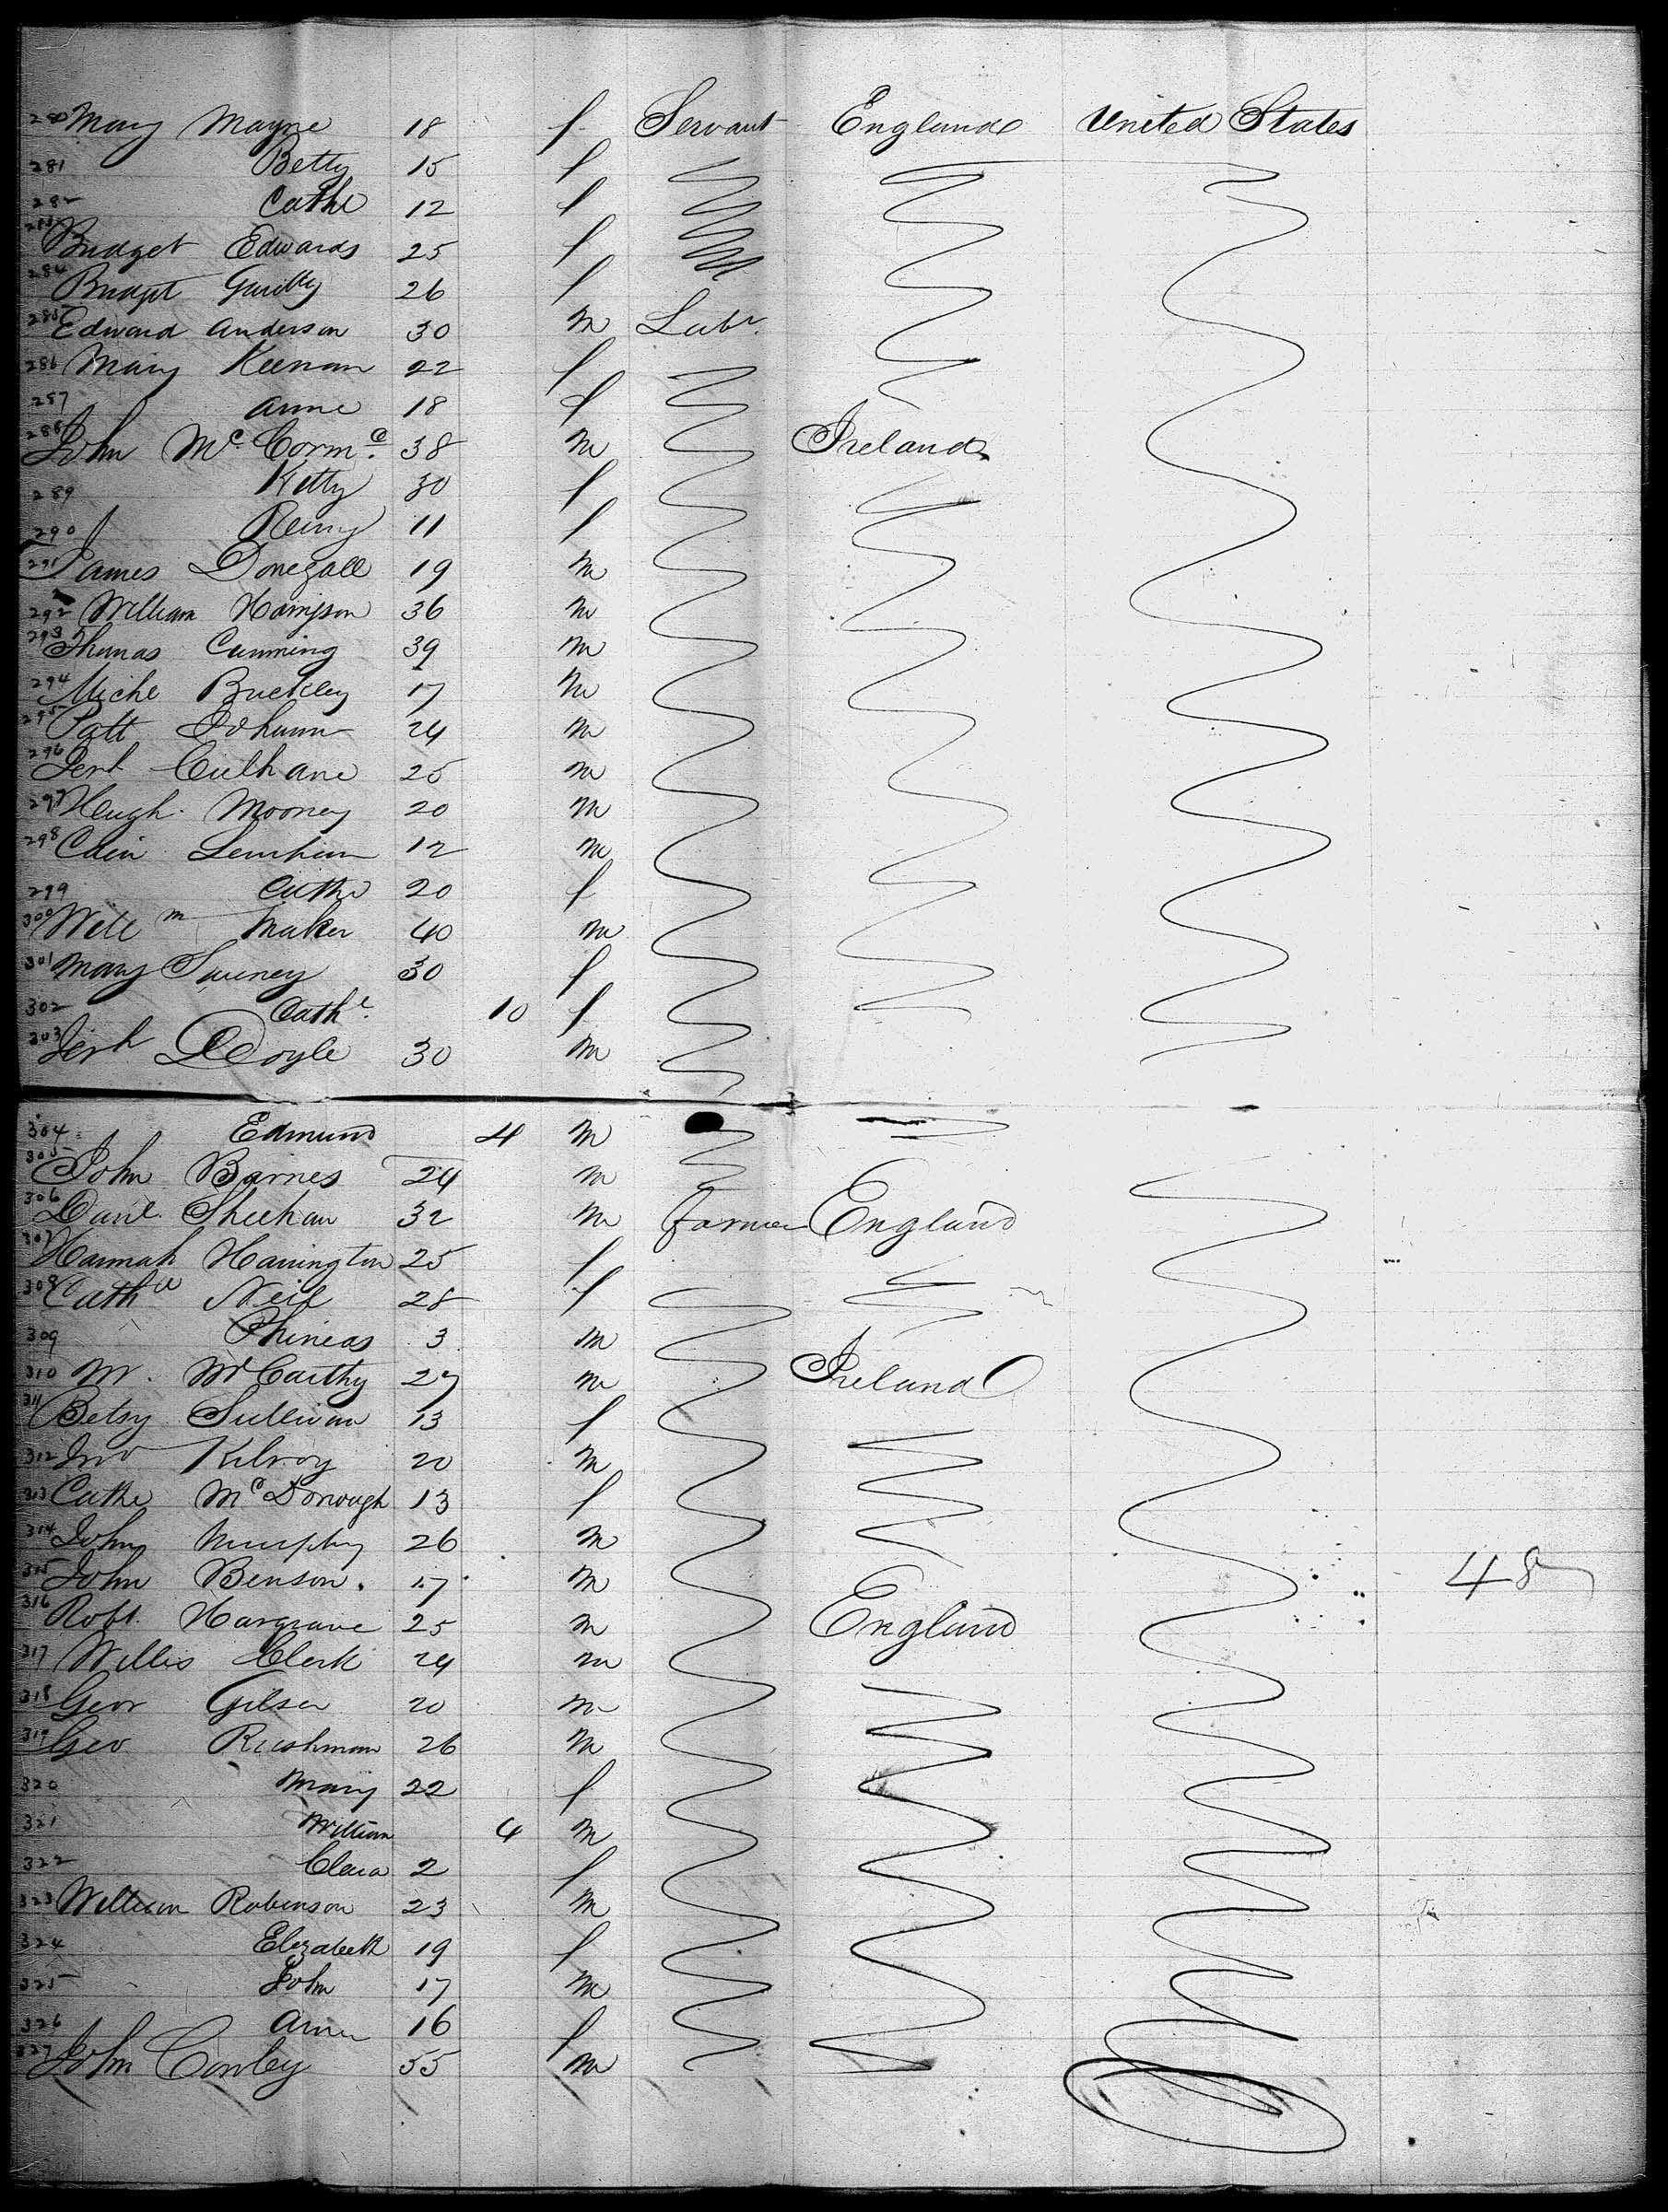 280 Mary Mayne 18 f Servant England United States
281 Betty 15 f
282 Cathe 12 f
283 Bridget Edwards 25 f
284 Bridget 26 f
285 Edward Anderson 30 m Labr.
286 Mary Keenan 22 f
287 Anne 18 f
288 John McCormc. 38 m Ireland
289 Kitty 30 f
290 11 f
291 James Donegall 19 m
292 William Hampson 36 m
293 Thomas Cumming 39 m
294 Michl Buckley 17 m
295 Patt 24 m
296 Jerh Culhane 25 m
297 Hugh Mooney 20 m
298 12 m
299 Cathe 20 f
300 Willm Maker 40 m
301 Mary Sweeney 30 f
302 Cathe. 10 f
303 Jerh Doyle 30 m
304 Edmund 4 m
305 John Barnes 24 m
306 Danl. Sheehan 32 m Farmer England
307 Hannah Harrington 25 f
308 Cathe Neil 28 f
309 Phineas 3 m
310 M. McCarthy 27 m Ireland
311 Betsy Sullivan 13 f
312 Jno Kilroy 20 m
313 Cathe McDonough 13 f
314 John Murphy 26 m
315 John Benson. 17 m
48
316 Robt. Hargrave 25 m England
317 Willis Clerk 24 m
318 Geor 20 m
319 Geo Rushman 26 m
320 Mary 22 f
321 William 4 m
322 Clara 2 f
323 William Robinson 23 m
324 Elizabeth 19 f
325 John 17 m
326 16 f
327 John Conley 55 m